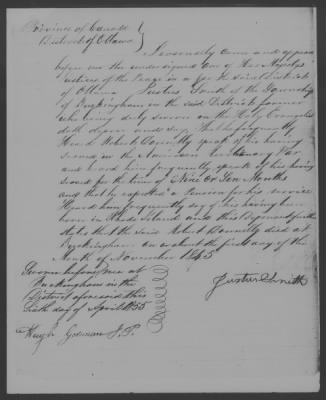 Province of Canada
District of Ottawa
Personally came and appeared
before me the undersigned one of Her Majestys
Justices of the Peace in & for the said District
of Ottawa Justus Smith of the Township
of Buckingham in the said District farmer
who being duly sworn on the Holy Evangelist
doth depose and say That he frequently
Heard Robert Donnelly speak of his having
served in the American Revolutionary War
and heard him frequently speak of his having
served for the time of Nine or Ten Months
and that he expected a Pension for his service
Heard him frequently say of his having been
born in Rhode Island and this Deponent further
states that the said Robert Donnelly died at
Buckingham on or about the first day of the
Month of November 1845
Sworn before me at
Buckingham in the
District aforesaid this
Sixth day of April 1855
Justus Smith
Hugh Gorman J.P.